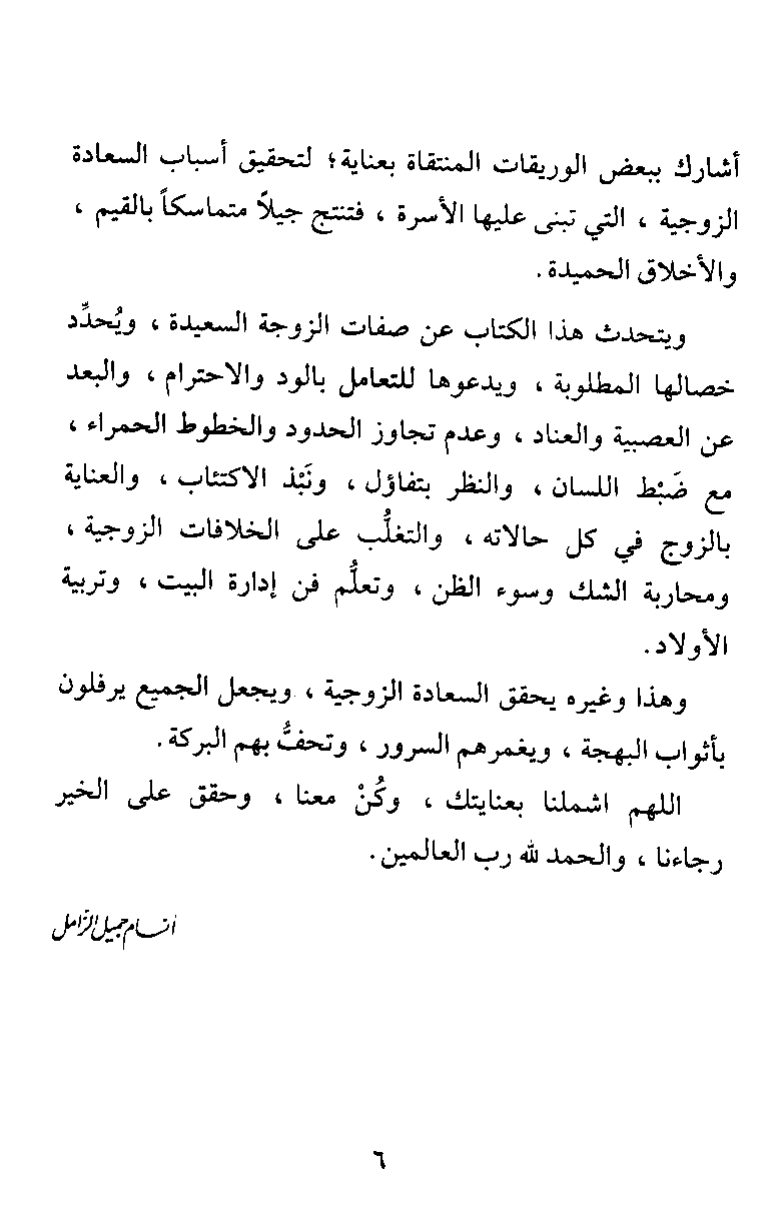 أشارك ببعض الوريقات المنتقاة بعناية؛ لتحقيق أسباب السعادة
الزوجية ، التي تبنى عليها الأسرة ، فتنتج جيلاً متماسكاً بالقيم ،
والأخلاق الحميدة .
ويتحدث هذا الكتاب عن صفات الزوجة السعيدة ، ويُحدِّد
خصالها المطلوبة ، ويدعوها للتعامل بالود والاحترام ، والبعد
عن العصبية والعناد ، وعدم تجاوز الحدود والخطوط الحمراء ،
مع ضَبْط اللسان ، والنظر بتفاؤل ، ونَبْذ الاكتئاب ، والعناية
بالزوج في كل حالاته ، والتغلُّب على الخلافات الزوجية ،
ومحاربة الشك وسوء الظن ، وتعلُّم فن إدارة البيت ، وتربية
الأولاد .
وهذا وغيره يحقق السعادة الزوجية ، ويجعل الجميع يرفلون
بأثواب البهجة ، ويغمرهم السرور ، وتحفُّ بهم البركة .
اللهم اشملنا بعنايتك ، وكُنْ معنا ، وحقق على الخير
رجاءنا ، والحمد لله رب العالمين .
أنسام جميل الزامل
٦